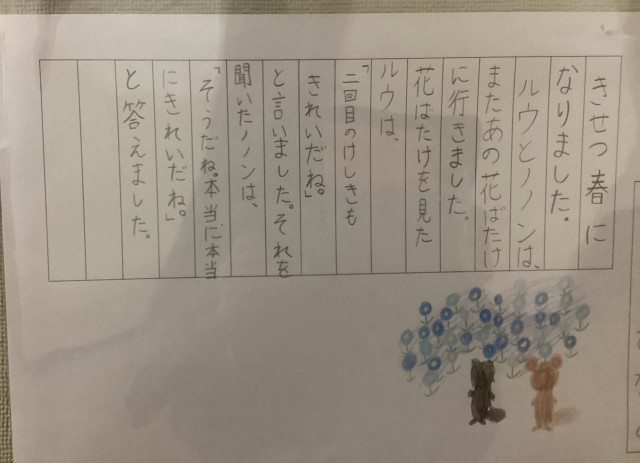 きせつ春に
なりました。
ルウとノノンは、
またあの花ばたけ
に行きました。
花はたけを見た
ルウは、
「二回目のけしきも
きれいだね。」
と言いました。それを
聞いたノノンは、
「そうだね。本当に本当
にきれいだね。」
と答えました。